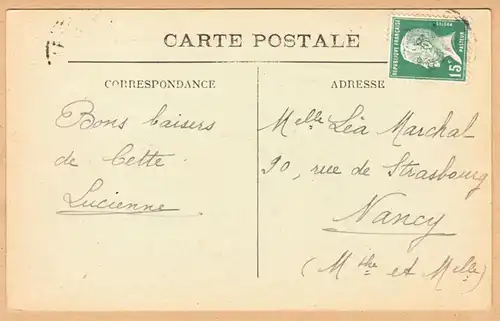 CARTE POSTALE
CORRESPONDANCE
Bons baisers
de Cette
Lucienne
ADRESSE
Melle Léa Marchal
90, rue de Strasbourg
Nancy
(Mthe et Melle)
REPUBLIQUE FRANÇAISE
15c
POSTES
PASTEUR